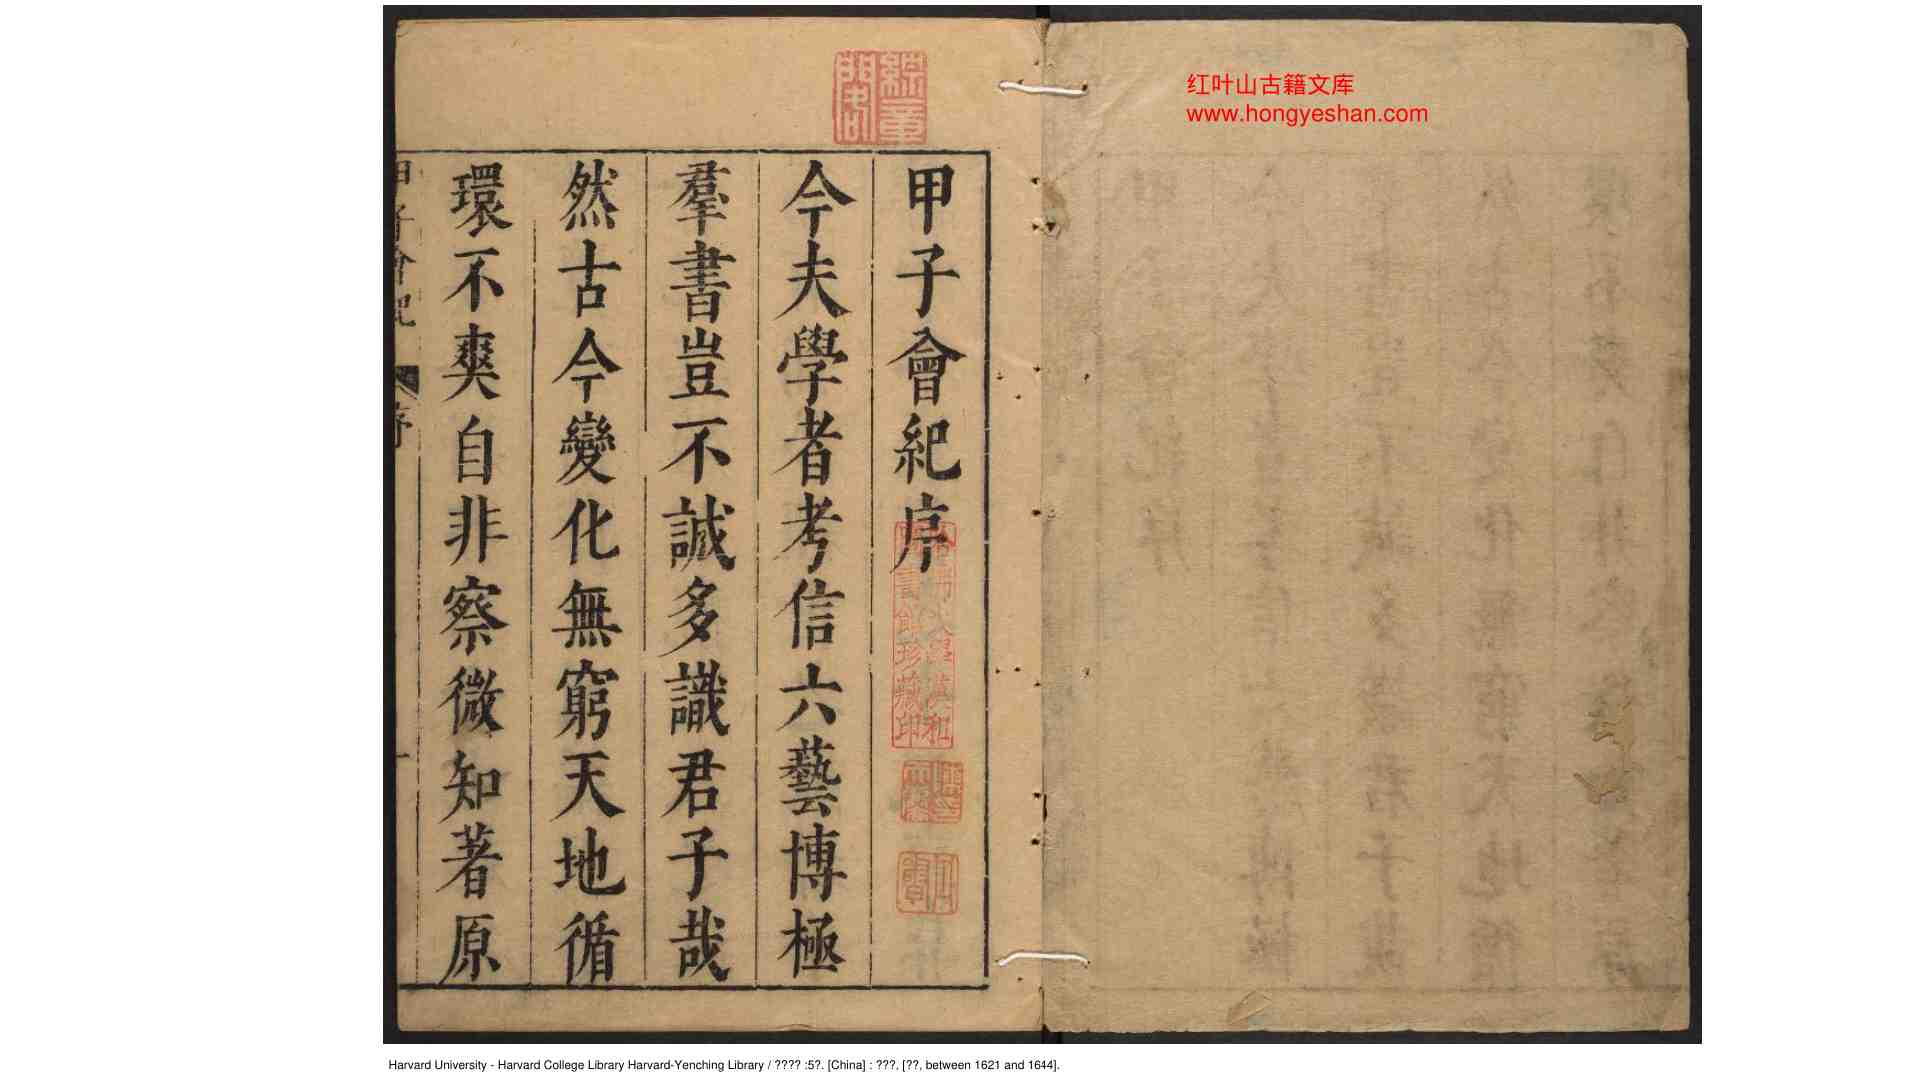 甲子會紀序
今夫學者考信六藝博極
羣書豈不誠多識君子哉
然古今變化無窮天地循
環不爽自非察微知著原
甲子會紀
序
一
哈佛大學漢和圖書館珍藏印
红叶山古籍文库
www.hongyeshan.com
Harvard University - Harvard College Library Harvard-Yenching Library / ???? :5?. [China] : ???, [??, between 1621 and 1644].